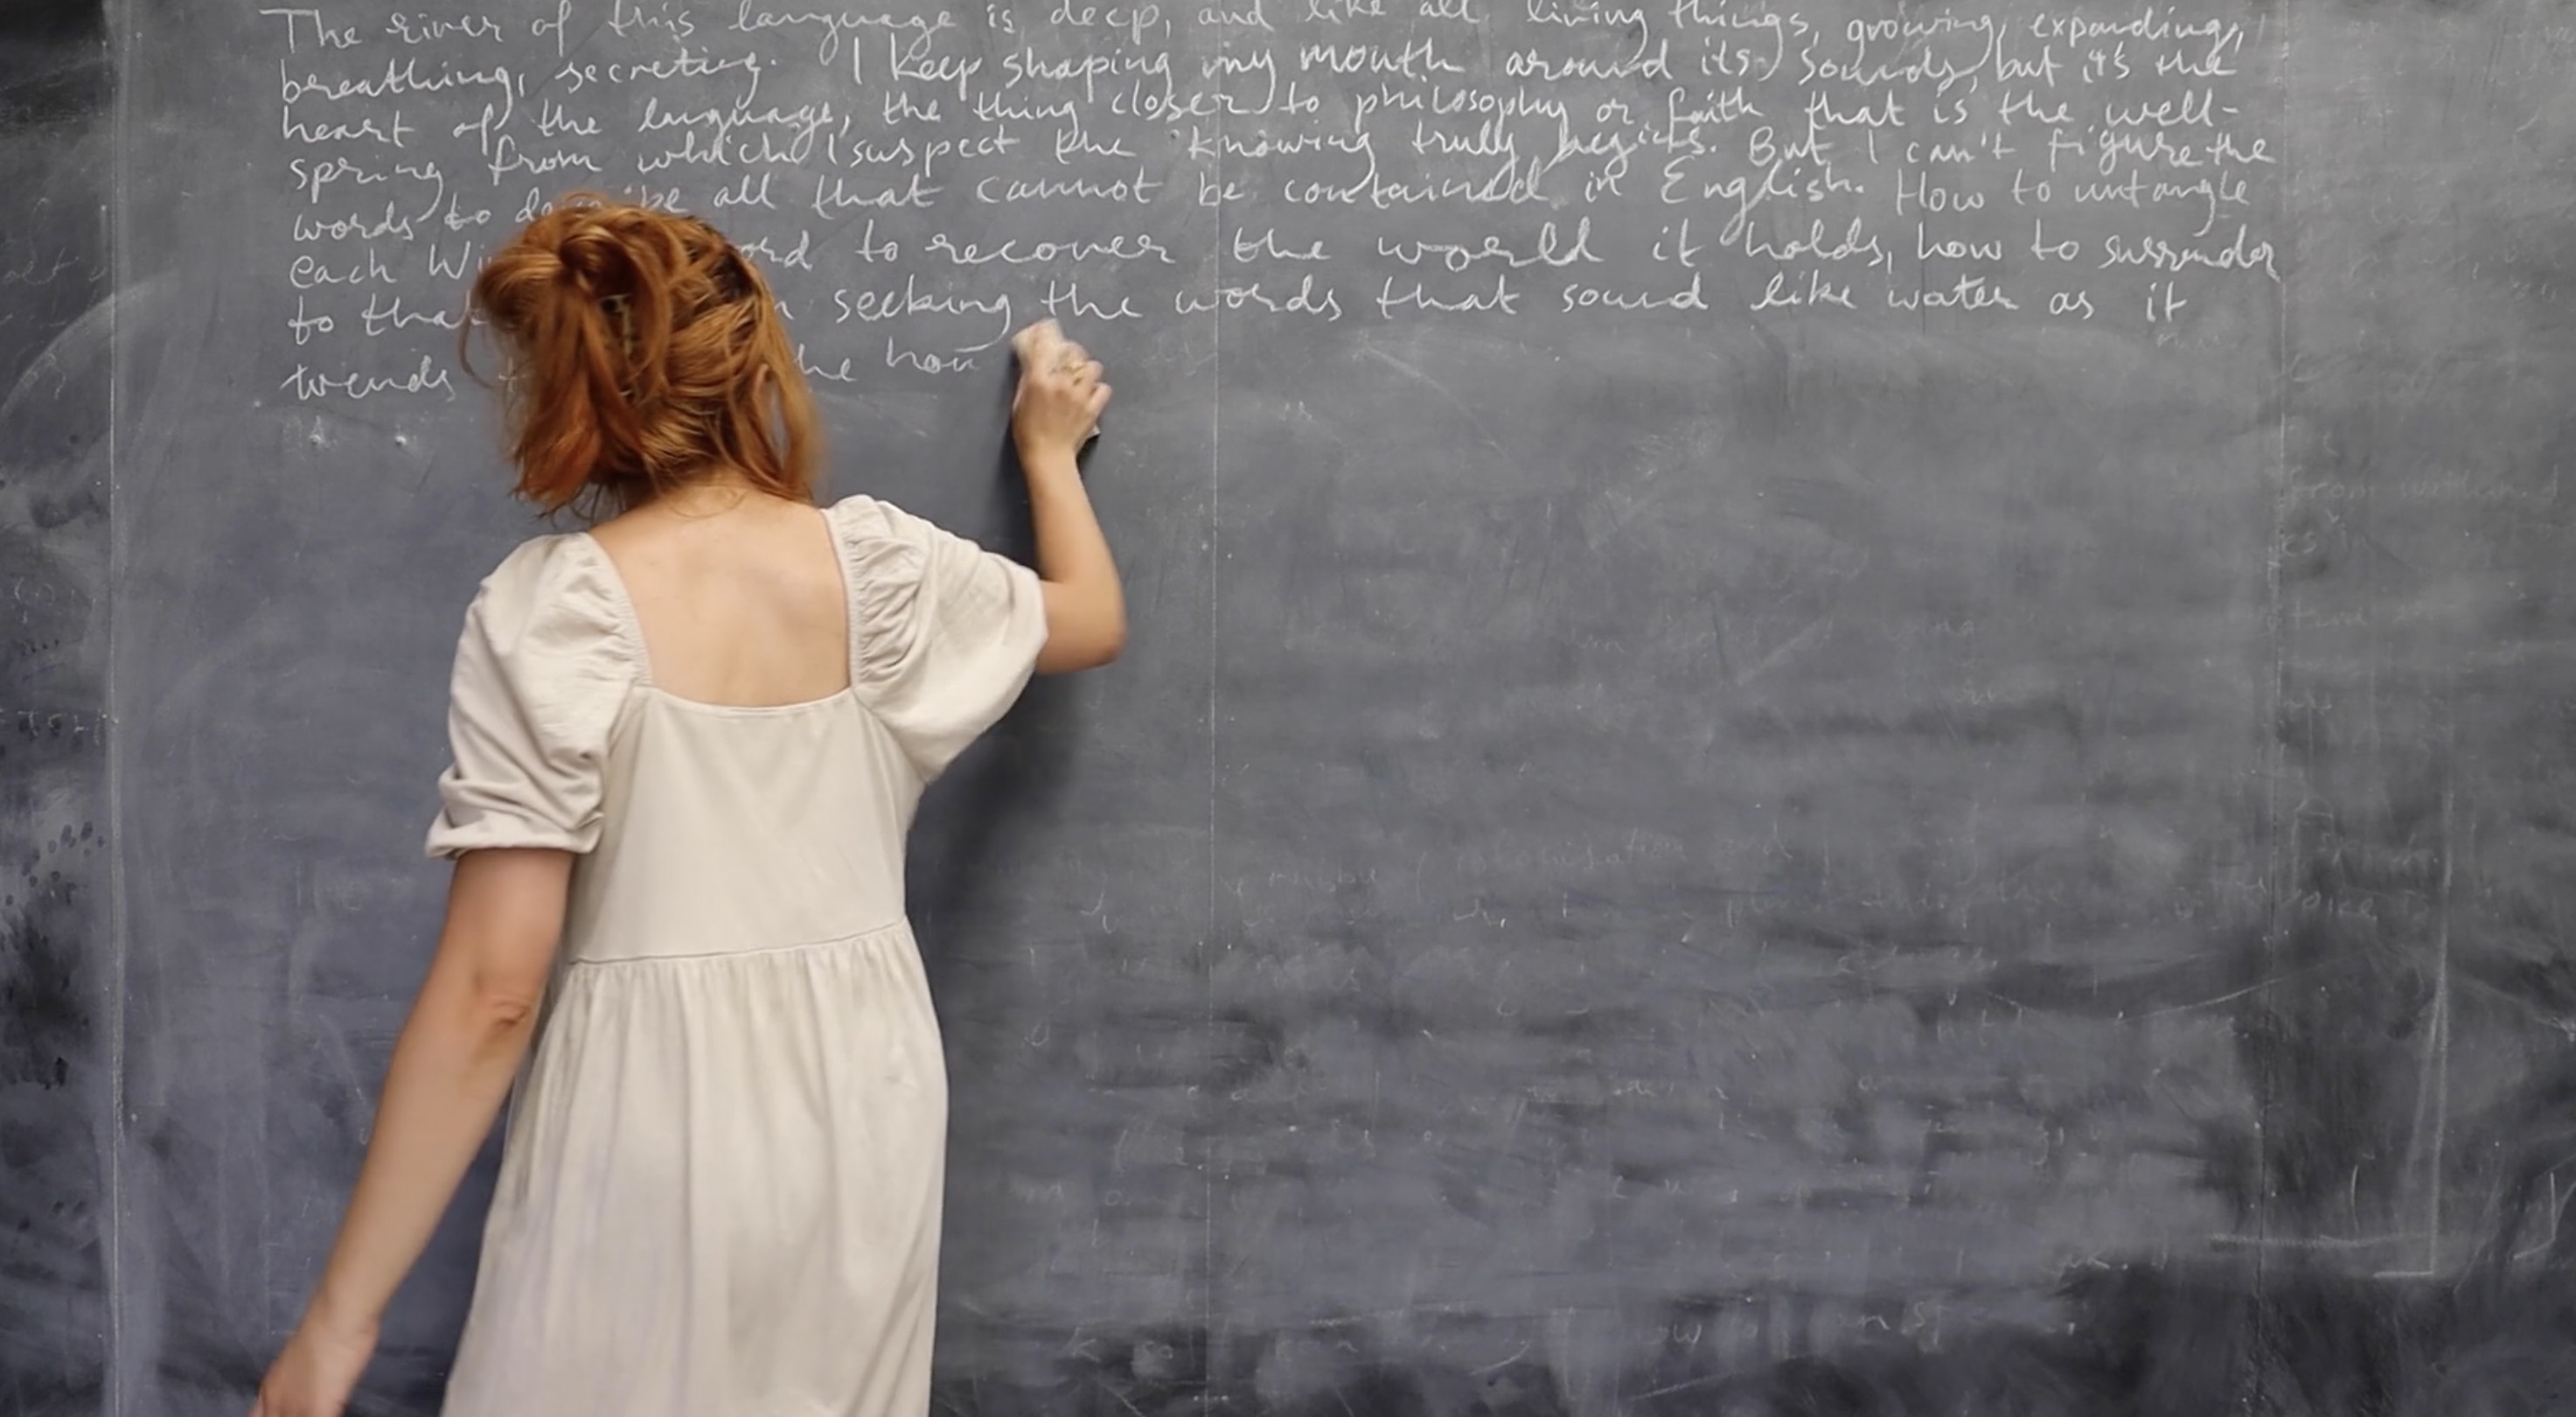 The river of this language is deep, and like all living things, growing, expanding,
breathing, secreting. I keep shaping my mouth around its sounds, but it's the
heart of the language, the thing closer to philosophy or faith that is the well-
spring from which I suspect the knowing truly begins. But I can't figure the
words to be all that cannot be contained in English. How to untangle
each to recover the world it holds, how to surrender
to seeking the words that sound like water as it
wends